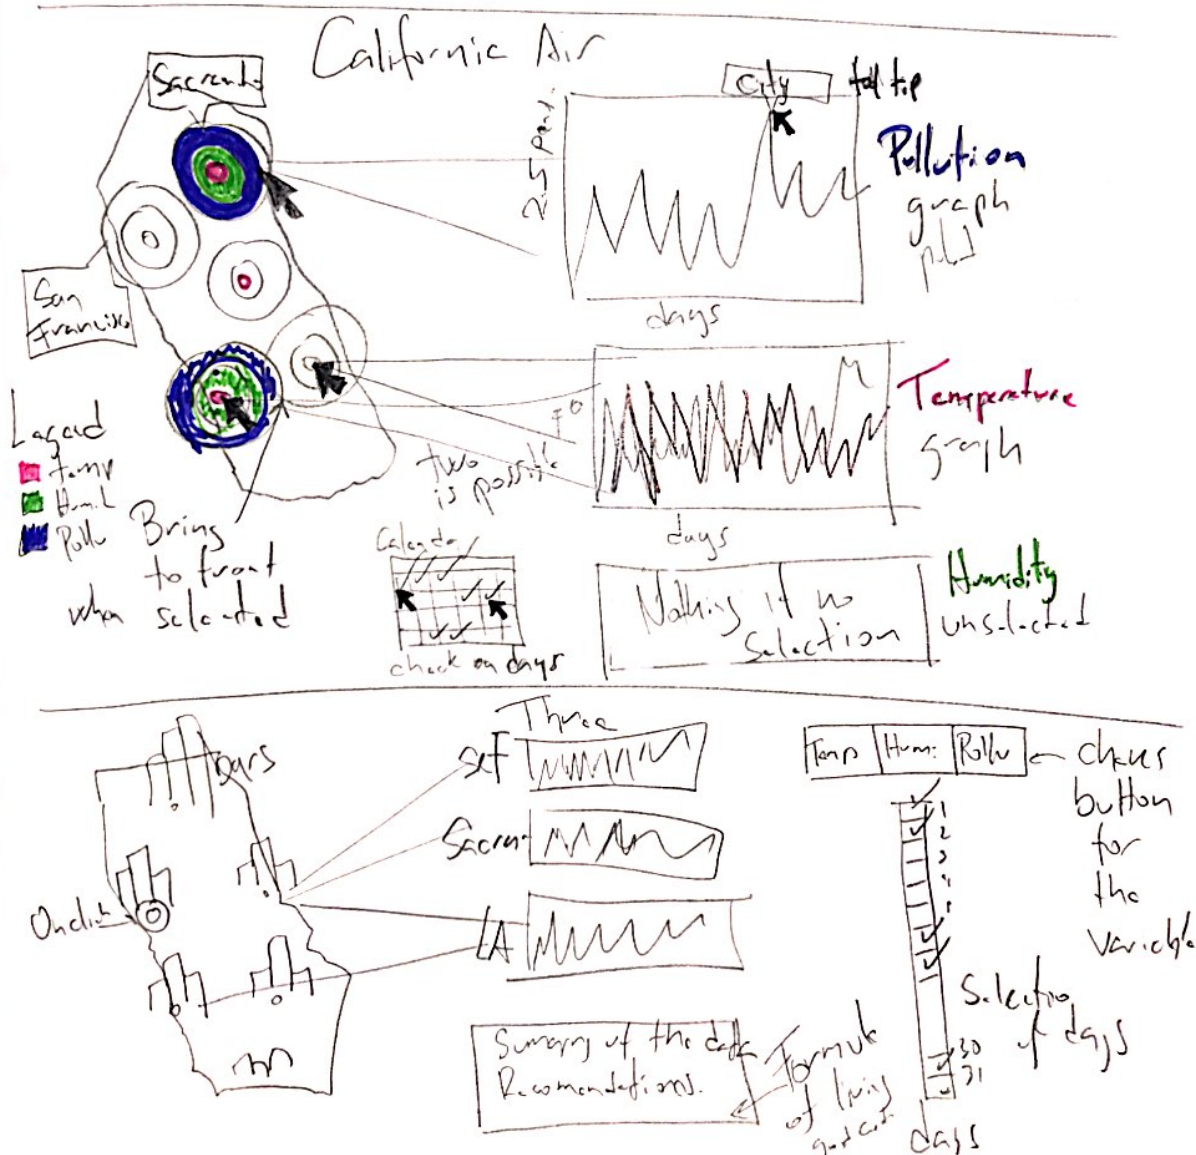 California Air
Sacramento
City
tool tip
2.5
Pollution
graph
days
San
Francisco
Temperature
graph
F°
two
is possible
days
Legend
temp
Humi
Pollu
Bring
to front
when selected
Calendar
check on days
Nothing if no
Selection
Humidity
unselected
bars
Three
SF
Sacram
LA
Onclick
Temp
Humi
Pollu
button
for
the
variable
1
2
3
4
30
31
Selection
of days
days
Summary of the data
Recomendations.
Formula
of living